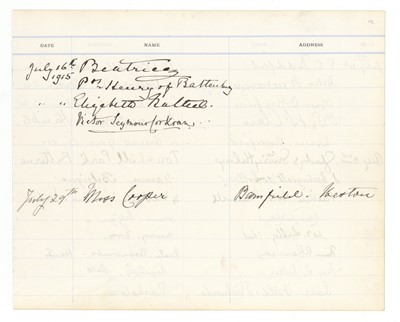 DATE NAME ADDRESS
July 16th 1915 Beatrice
Pss Henry of Battenberg
" " Elizabeth
Victor Seymour Corkran
July 29th Miss Cooper Bamfield. Weston